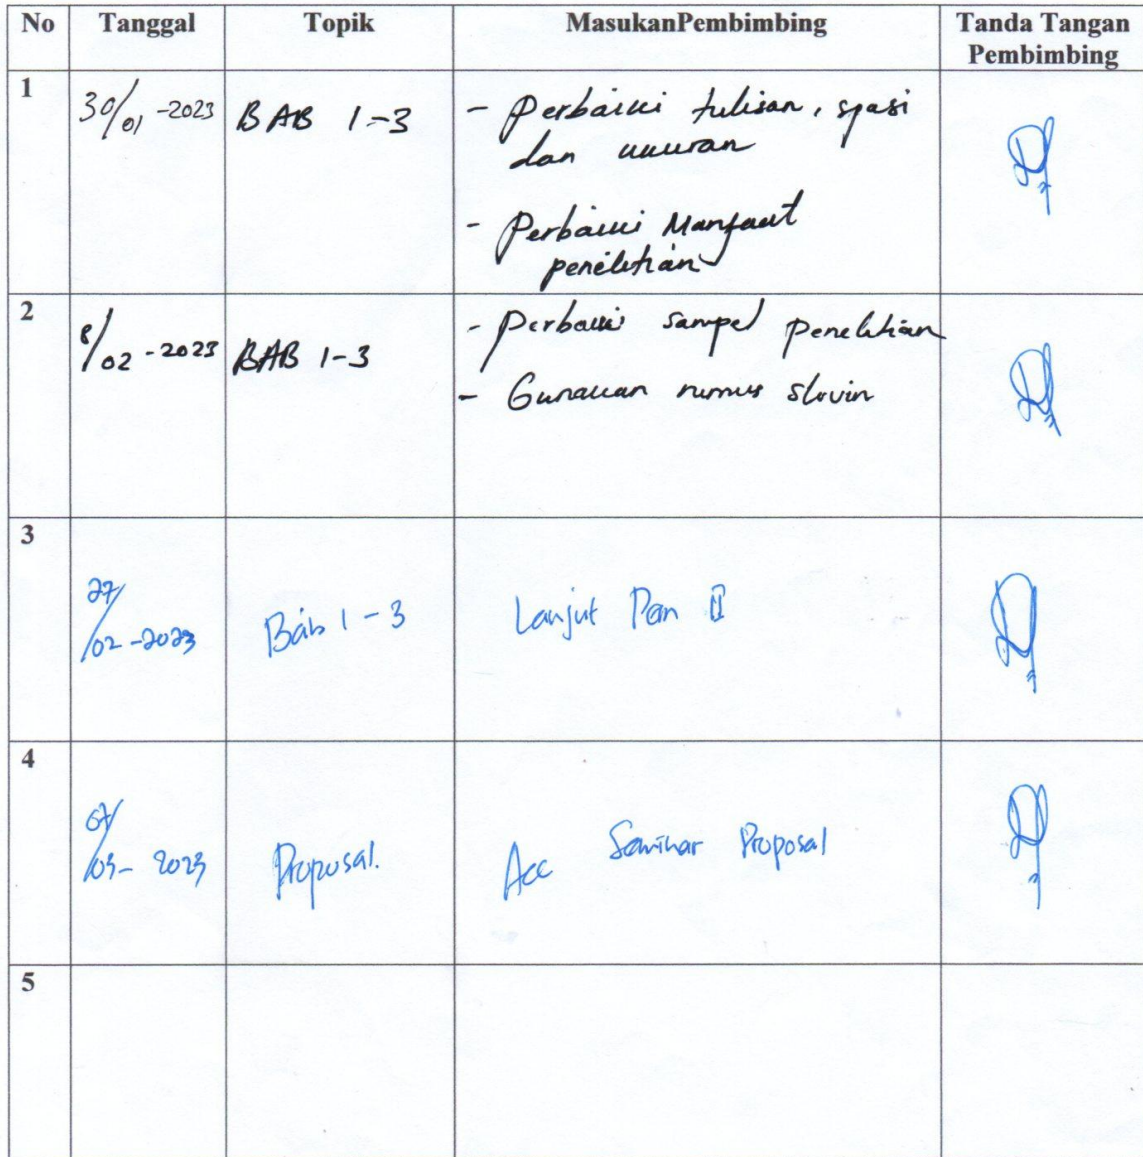 No Tanggal Topik MasukanPembimbing Tanda Tangan Pembimbing
1 30/01-2023 BAB 1-3 - Perbaiki tulisan, spasi
dan ukuran
- Perbaiki Manfaat
penelitian
2 8/02-2023 BAB 1-3 - Perbaiki sampel penelitian
- Gunakan rumus slovin
3 27/02-2023 Bab 1-3 Lanjut Pem II
4 07/03-2023 Proposal. Acc Seminar Proposal
5